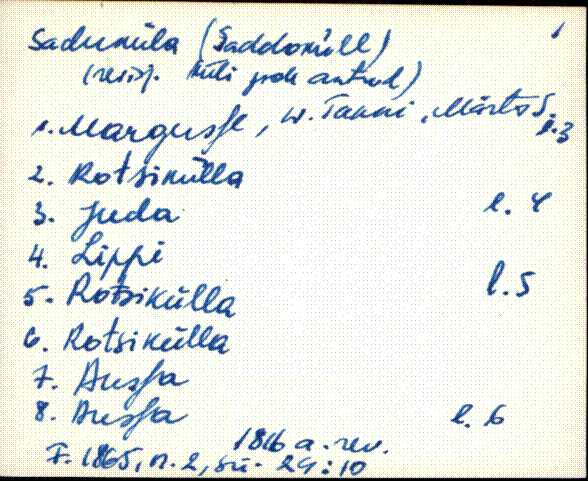 Saduküla (Saddoküll)
(revis. küli pole antud)
1. Margusse, w. Tanni, Märto S. l. 3
2. Rotsikülla
3. Juda l. 4
4. Lippi
5. Rotsikülla l. 5
6. Rotsikülla
7. Aussa
8. Aussa l. 6
1816 a. rev.
F. 1865, n. 2, sü. 29:10